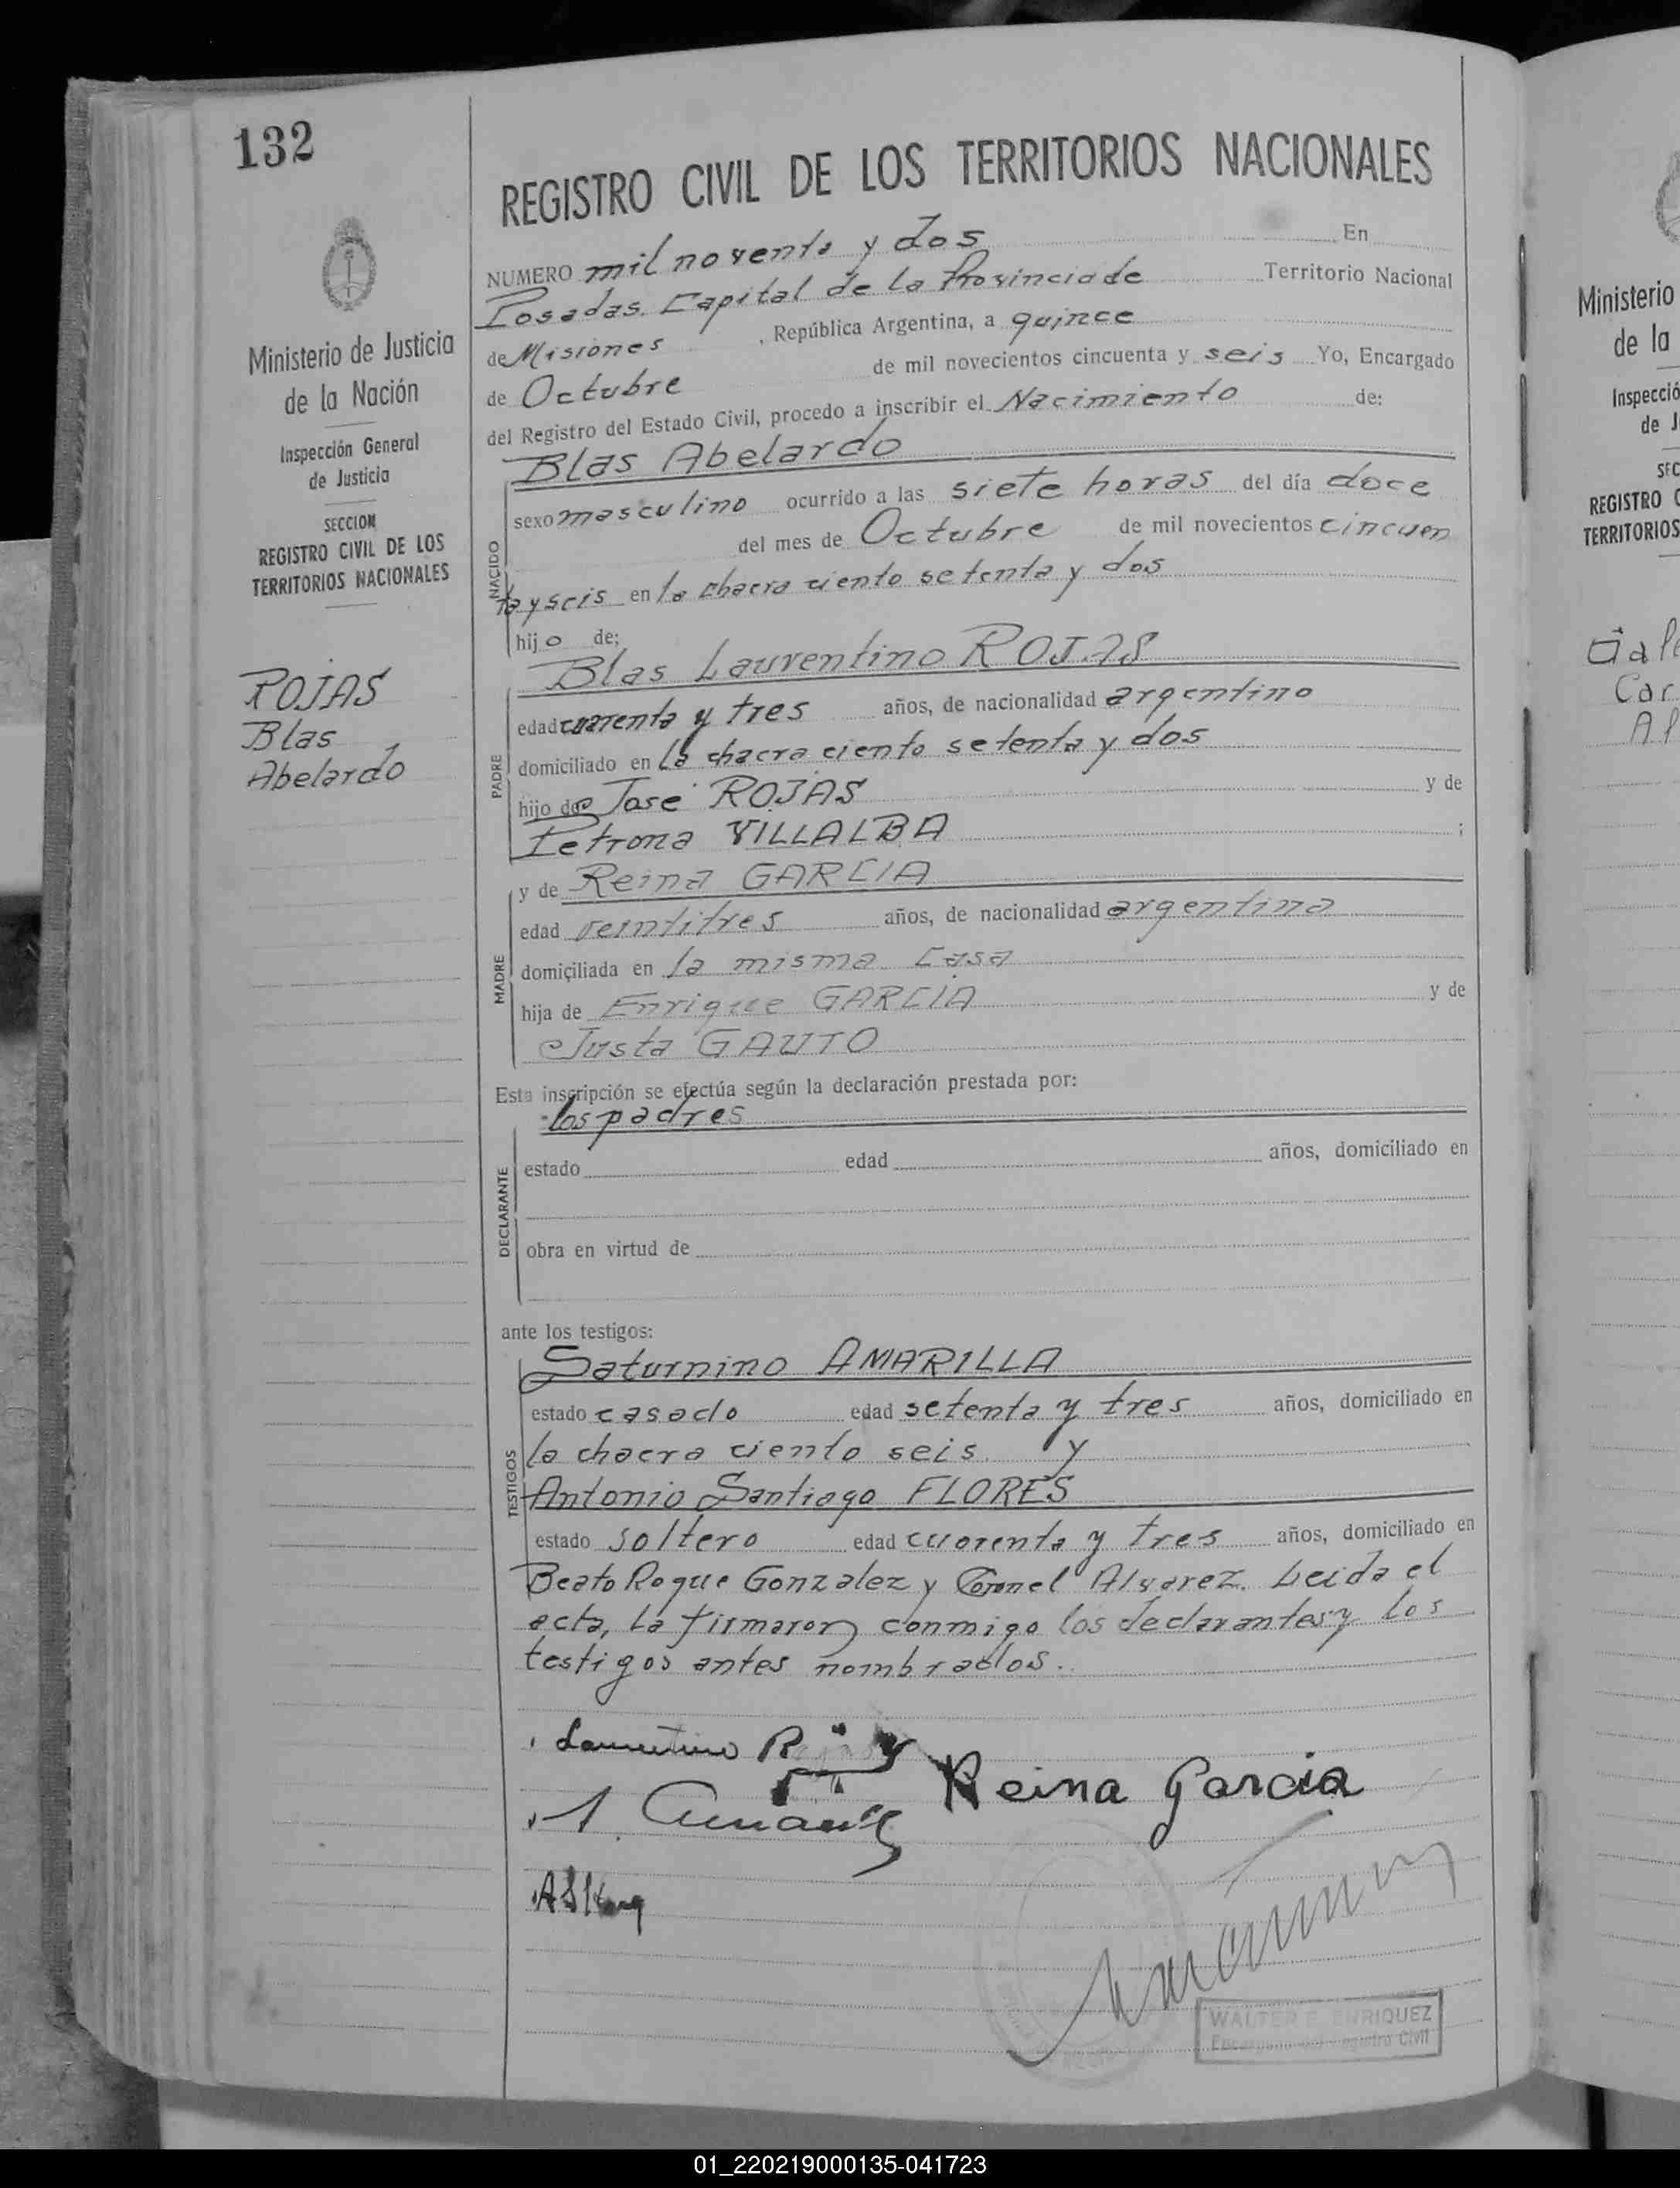 132
REGISTRO CIVIL DE LOS TERRITORIOS NACIONALES
NUMERO mil noventa y dos En
Posadas. Capital de la Provincia de Territorio Nacional
de Misiones , República Argentina, a quince
de Octubre de mil novecientos cincuenta y seis Yo, Encargado
del Registro del Estado Civil, procedo a inscribir el Nacimiento de:
Blas Abelardo
NACIDO
sexo masculino ocurrido a las siete horas del día doce
del mes de Octubre de mil novecientos cincuen
ta y seis en la chacra ciento setenta y dos
hijo de:
Blas Laurentino ROJAS
PADRE
edad cuarenta y tres años, de nacionalidad argentino
domiciliado en la chacra ciento setenta y dos
hijo de José ROJAS y de
Petrona VILLALBA ;
MADRE
y de Reina GARCIA
edad veintitres años, de nacionalidad argentina
domiciliada en la misma casa
hija de Enrique GARCIA y de
Justa GAUTO
Esta inscripción se efectúa según la declaración prestada por:
los padres
DECLARANTE
estado edad años, domiciliado en
obra en virtud de
ante los testigos:
TESTIGOS
Saturnino AMARILLA
estado casado edad setenta y tres años, domiciliado en
la chacra ciento seis. y
Antonio Santiago FLORES
estado soltero edad cuarenta y tres años, domiciliado en
Beato Roque Gonzalez y Coronel Alvarez. Leida el
acta, la firmaron conmigo los declarantes y los
testigos antes nombrados.
Laurentino Rojas
Reina Garcia
WALTER E. ENRIQUEZ
Encargado del Registro Civil
Ministerio de Justicia
de la Nación
Inspección General
de Justicia
SECCION
REGISTRO CIVIL DE LOS
TERRITORIOS NACIONALES
ROJAS
Blas
Abelardo
Ministerio
de la
Inspecció
de J
SEC
REGISTRO C
TERRITORIOS
Car
01_220219000135-041723